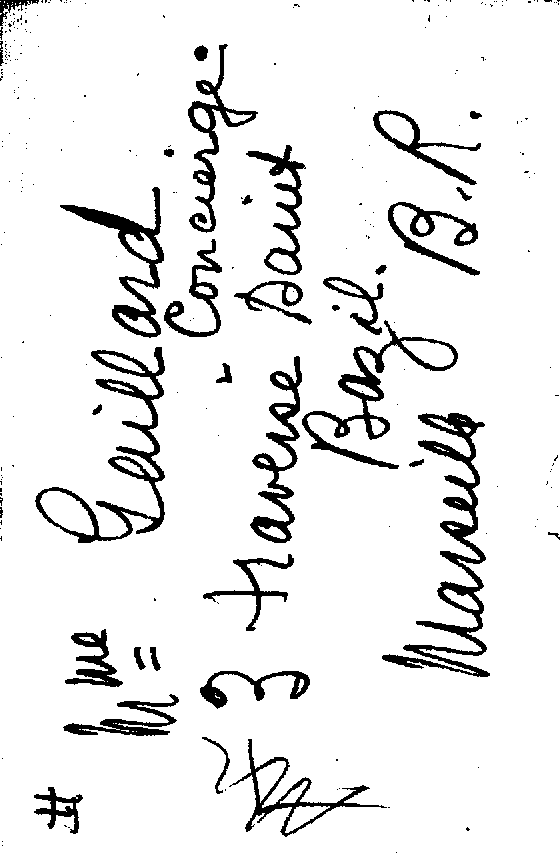 # Mme Gaillard
Concierge.
3 traverse Saint
Bazil.
Marseille B.R.